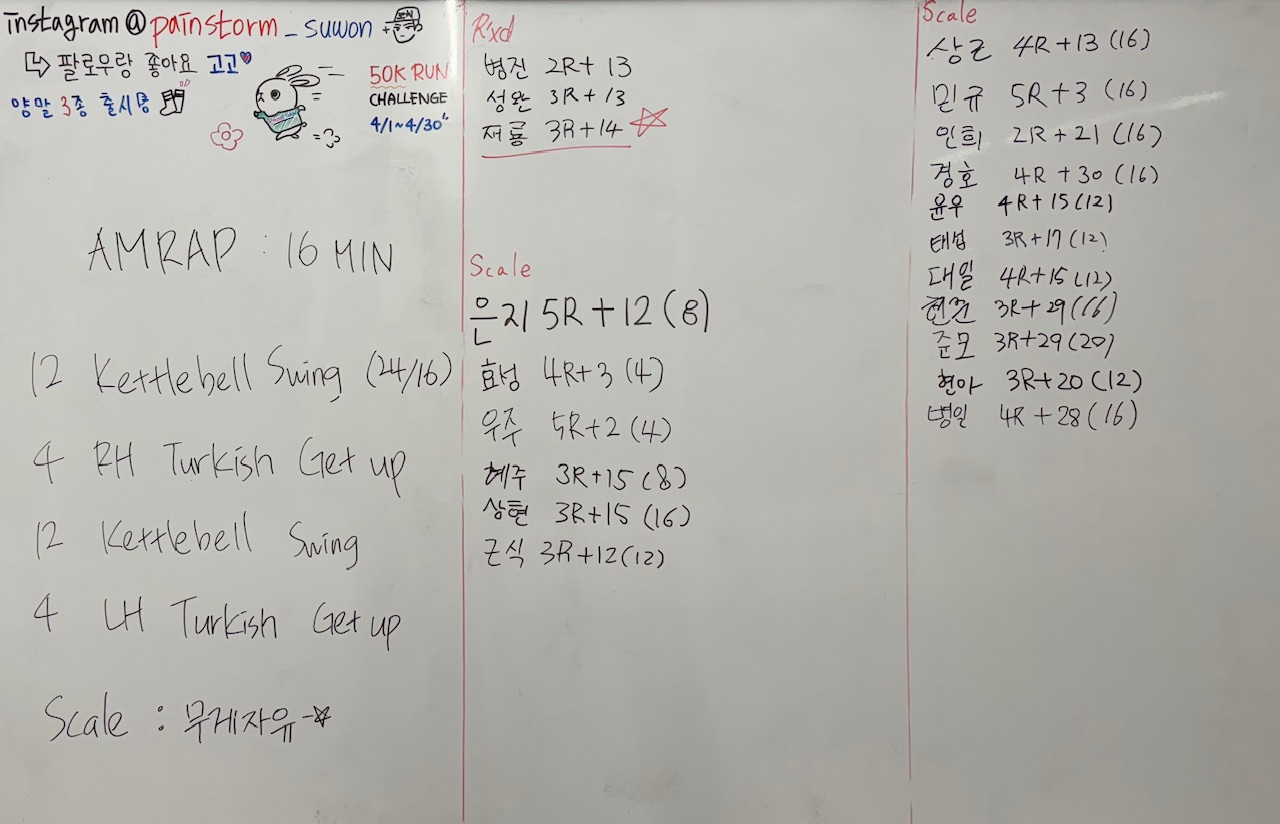 instagram@painstorm_suwon
팔로우랑 좋아요 고고
양말 3종 출시중
50K RUN
CHALLENGE
4/1~4/30
AMRAP : 16 MIN
12 Kettlebell Swing (24/16)
4 RH Turkish Get up
12 Kettlebell Swing
4 LH Turkish Get up
Scale : 무게자유
Rxd
병진 2R+13
성완 3R+13
재룡 3R+14
Scale
은지 5R+12(8)
효성 4R+3(4)
우주 5R+2(4)
혜주 3R+15(8)
상현 3R+15(16)
근식 3R+12(12)
Scale
상근 4R+13(16)
민규 5R+3(16)
인희 2R+21(16)
경호 4R+30(16)
윤우 4R+15(12)
태섭 3R+17(12)
대일 4R+15(12)
3R+29(16)
준모 3R+29(20)
현아 3R+20(12)
병일 4R+28(16)